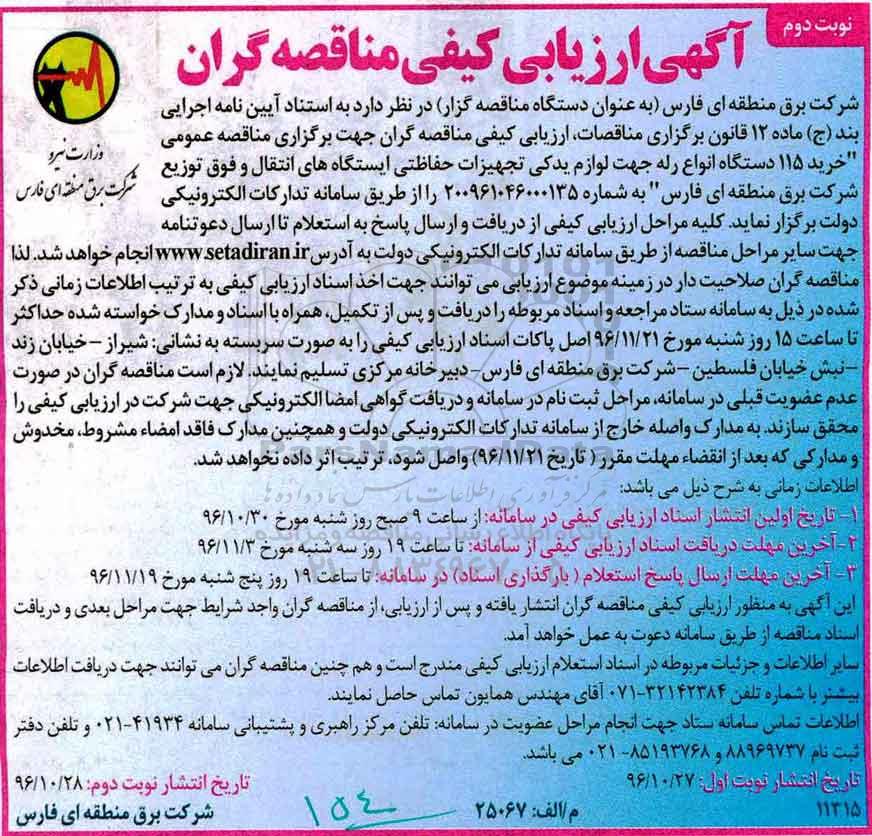 نوبت دوم
آگهی ارزیابی کیفی مناقصه گران
وزارت نیرو
شرکت برق منطقه ای فارس
شرکت برق منطقه ای فارس (به عنوان دستگاه مناقصه گزار) در نظر دارد به استناد آیین نامه اجرایی
بند (ج) ماده ۱۲ قانون برگزاری مناقصات، ارزیابی کیفی مناقصه گران جهت برگزاری مناقصه عمومی
"خرید ۱۱۵ دستگاه انواع رله جهت لوازم یدکی تجهیزات حفاظتی ایستگاه های انتقال و فوق توزیع
شرکت برق منطقه ای فارس" به شماره ۲۰۰۹۶۱۰۴۶۰۰۰۱۳۵ را از طریق سامانه تدارکات الکترونیکی
دولت برگزار نماید. کلیه مراحل ارزیابی کیفی از دریافت و ارسال پاسخ به استعلام تا ارسال دعوتنامه
جهت سایر مراحل مناقصه از طریق سامانه تدارکات الکترونیکی دولت به آدرس www.setadiran.ir انجام خواهد شد. لذا
مناقصه گران صلاحیت دار در زمینه موضوع ارزیابی می توانند جهت اخذ اسناد ارزیابی کیفی به ترتیب اطلاعات زمانی ذکر
شده در ذیل به سامانه ستاد مراجعه و اسناد مربوطه را دریافت و پس از تکمیل، همراه با اسناد و مدارک خواسته شده حداکثر
تا ساعت ۱۵ روز شنبه مورخ ۹۶/۱۱/۲۱ اصل پاکات اسناد ارزیابی کیفی را به صورت سربسته به نشانی: شیراز – خیابان زند
–نبش خیابان فلسطین –شرکت برق منطقه ای فارس- دبیرخانه مرکزی تسلیم نمایند. لازم است مناقصه گران در صورت
عدم عضویت قبلی در سامانه، مراحل ثبت نام در سامانه و دریافت گواهی امضا الکترونیکی جهت شرکت در ارزیابی کیفی را
محقق سازند. به مدارک واصله خارج از سامانه تدارکات الکترونیکی دولت و همچنین مدارک فاقد امضاء مشروط، مخدوش
و مدارکی که بعد از انقضاء مهلت مقرر ( تاریخ ۹۶/۱۱/۲۱) واصل شود، ترتیب اثر داده نخواهد شد.
اطلاعات زمانی به شرح ذیل می باشد:
۱- تاریخ اولین انتشار اسناد ارزیابی کیفی در سامانه: از ساعت ۹ صبح روز شنبه مورخ ۹۶/۱۰/۳۰
۲-آخرین مهلت دریافت اسناد ارزیابی کیفی از سامانه: تا ساعت ۱۹ روز سه شنبه مورخ ۹۶/۱۱/۳
۳- آخرین مهلت ارسال پاسخ استعلام ( بارگذاری اسناد) در سامانه: تا ساعت ۱۹ روز پنج شنبه مورخ ۹۶/۱۱/۱۹
این آگهی به منظور ارزیابی کیفی مناقصه گران انتشار یافته و پس از ارزیابی، از مناقصه گران واجد شرایط جهت مراحل بعدی و دریافت
اسناد مناقصه از طریق سامانه دعوت به عمل خواهد آمد.
سایر اطلاعات و جزئیات مربوطه در اسناد استعلام ارزیابی کیفی مندرج است و هم چنین مناقصه گران می توانند جهت دریافت اطلاعات
بیشتر با شماره تلفن ۳۲۱۴۲۳۸۴-۰۷۱ آقای مهندس همایون تماس حاصل نمایند.
اطلاعات تماس سامانه ستاد جهت انجام مراحل عضویت در سامانه: تلفن مرکز راهبری و پشتیبانی سامانه ۴۱۹۳۴-۰۲۱ و تلفن دفتر
ثبت نام ۸۸۹۶۹۷۳۷ و ۸۵۱۹۳۷۶۸- ۰۲۱ می باشد.
تاریخ انتشار نوبت اول: ۹۶/۱۰/۲۷
تاریخ انتشار نوبت دوم: ۹۶/۱۰/۲۸
۱۱۳۱۵
م/الف: ۲۵۰۶۷
۱۵۴
شرکت برق منطقه ای فارس